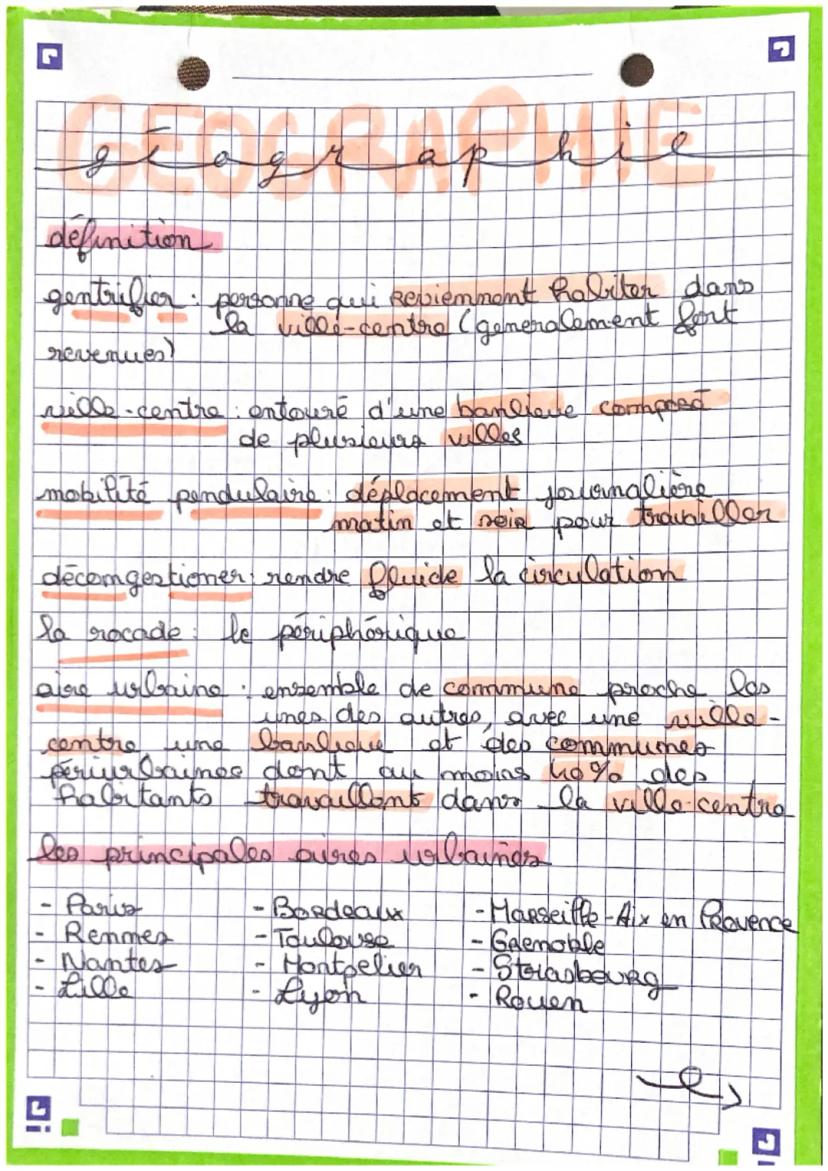 GEOGRAPHIE
géographie
définition
gentrifier : personne qui reviennent habiter dans
la ville-centre (generalement fort
revenues)
ville-centre : entouré d'une banlieue composé
de plusieurs villes
mobilité pendulaire : déplacement journalière
matin et soir pour travailler
décongestioner : rendre fluide la circulation
la rocade : le périphérique
aire urbaine : ensemble de commune proche les
unes des autres, avec une ville-
centre, une banlieue et des communes
périurbaines dont au moins 40% des
habitants travaillent dans la ville-centre
les principales aires urbaines
- Paris - Bordeaux - Marseille-Aix en Provence
- Rennes - Toulouse - Grenoble
- Nantes - Montpelier - Strasbourg
- Lille - Lyon - Rouen